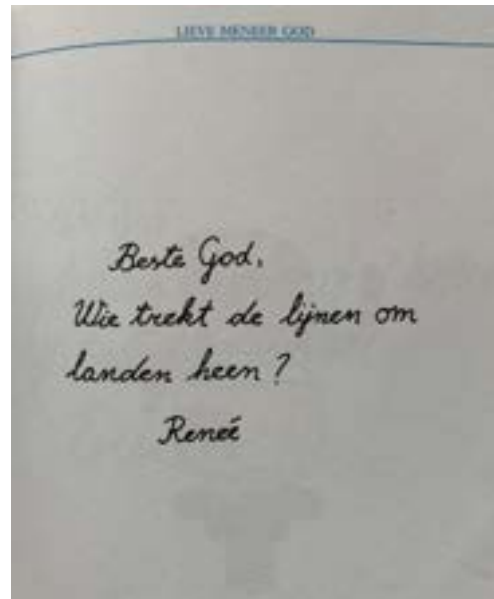 LIEVE MENEER GOD
Beste God,
Wie trekt de lijnen om
landen heen?
Reneé